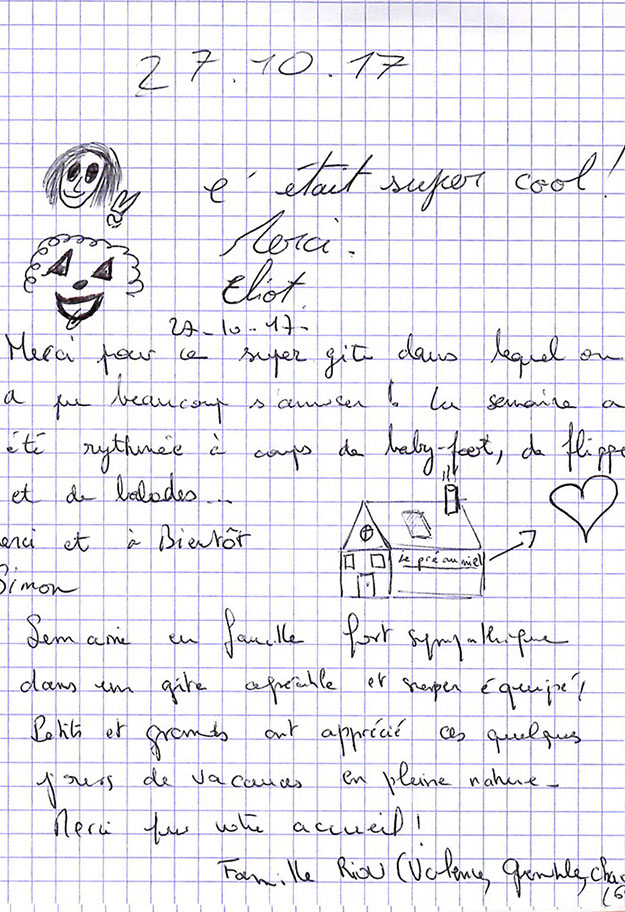 27.10.17
c'était super cool!
Merci.
Eliot
27-10-17-
Merci pour ce super gite dans lequel on
a pu beaucoup s'amuser! La semaine a
été rythmée à coups de baby-foot, de flippe
et de balades...
erci et à Bientôt
Simon
le pré au miel
Semaine en famille fort sympathique
dans un gite agréable et super équipé!
Petits et grands ont apprécié ces quelques
jours de vacances en pleine nature-
Merci pour votre accueil!
Famille Riou (Valence, Grenoble,